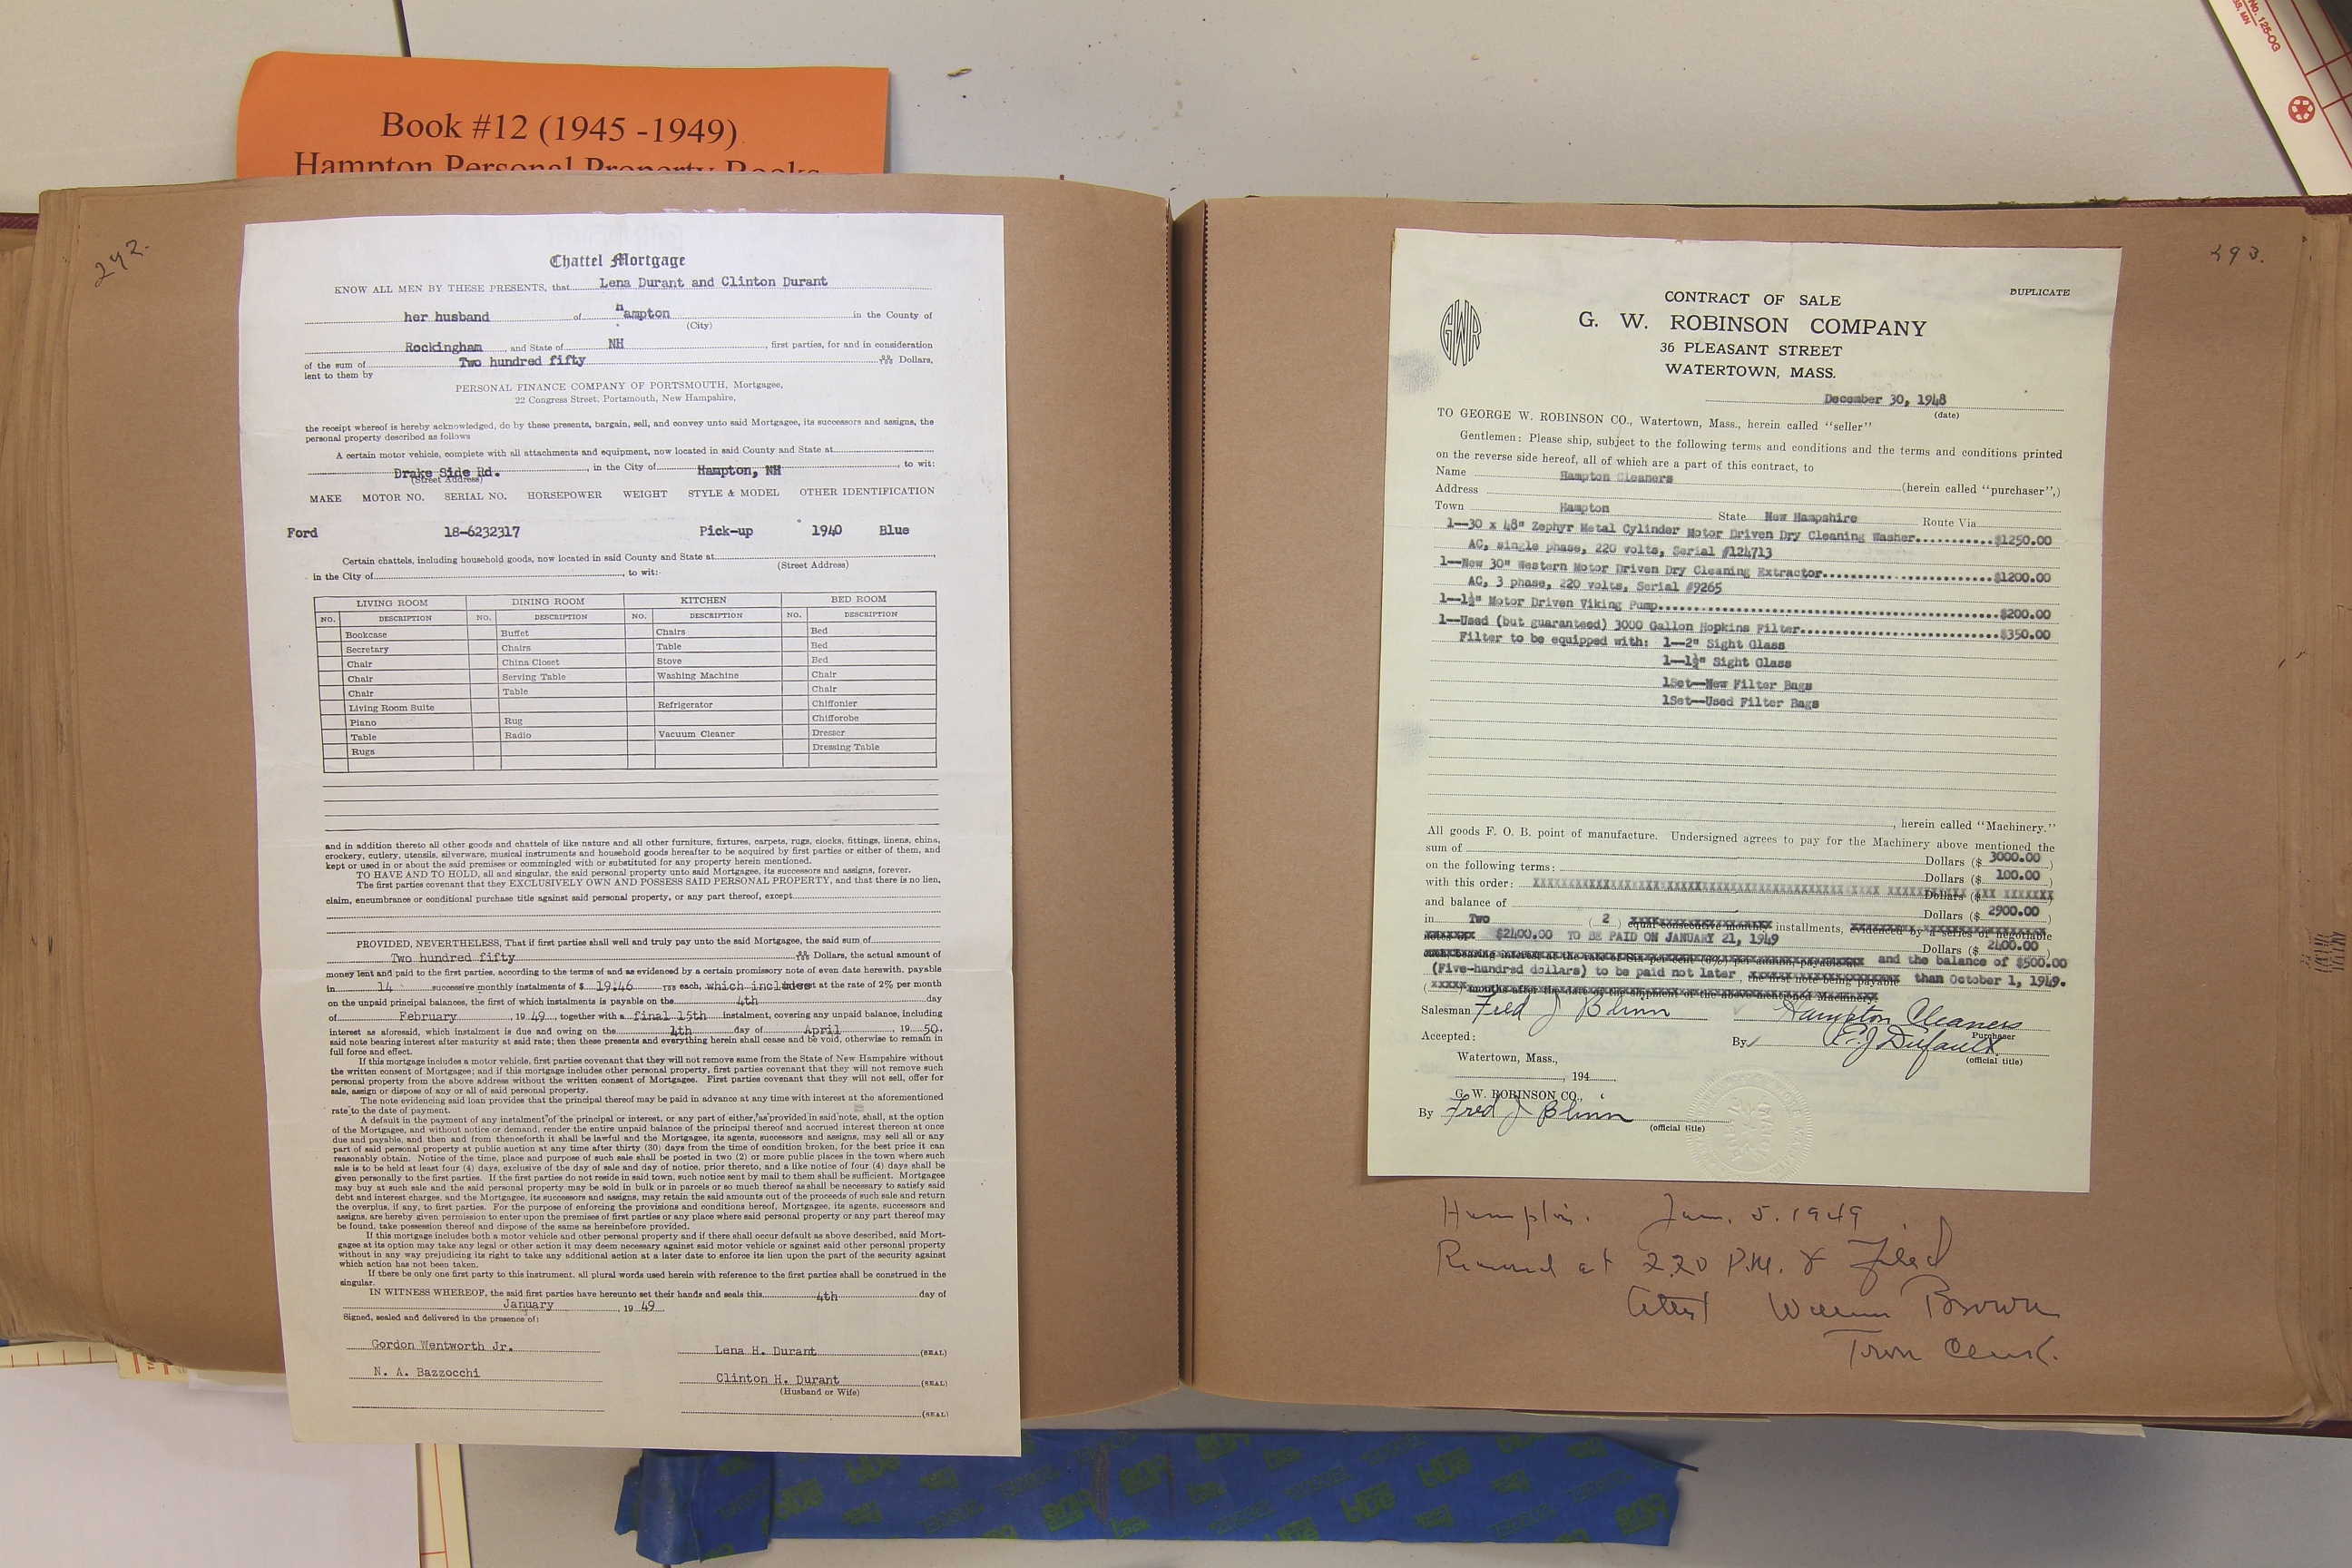 Book #12 (1945 -1949)
Hampton Personal Property Books
292.
Chattel Mortgage
KNOW ALL MEN BY THESE PRESENTS, that Lena Durant and Clinton Durant
her husband of Hampton in the County of
(City)
Rockingham, and State of NH, first parties, for and in consideration
of the sum of Two hundred fifty Dollars,
lent to them by
PERSONAL FINANCE COMPANY OF PORTSMOUTH, Mortgagee,
22 Congress Street, Portsmouth, New Hampshire,
the receipt whereof is hereby acknowledged, do by these presents, bargain, sell, and convey unto said Mortgagee, its successors and assigns, the
personal property described as follows
A certain motor vehicle, complete with all attachments and equipment, now located in said County and State at
Drake Side Rd., in the City of Hampton, NH, to wit:
(Street Address)
MAKE MOTOR NO. SERIAL NO. HORSEPOWER WEIGHT STYLE & MODEL OTHER IDENTIFICATION
Ford 18-6232317 Pick-up 1940 Blue
Certain chattels, including household goods, now located in said County and State at
(Street Address)
in the City of, to wit:
LIVING ROOM DINING ROOM KITCHEN BED ROOM
NO. DESCRIPTION NO. DESCRIPTION NO. DESCRIPTION NO. DESCRIPTION
Bookcase Buffet Chairs Bed
Secretary Chairs Table Bed
Chair China Closet Stove Bed
Chair Serving Table Washing Machine Chair
Chair Table Chair
Living Room Suite Refrigerator Chiffonier
Piano Rug Chifforobe
Table Radio Vacuum Cleaner Dresser
Rugs Dressing Table
and in addition thereto all other goods and chattels of like nature and all other furniture, fixtures, carpets, rugs, clocks, fittings, linens, china,
crockery, cutlery, utensils, silverware, musical instruments and household goods hereafter to be acquired by first parties or either of them, and
kept or used in or about the said premises or commingled with or substituted for any property herein mentioned.
TO HAVE AND TO HOLD, all and singular, the said personal property unto said Mortgagee, its successors and assigns, forever.
The first parties covenant that they EXCLUSIVELY OWN AND POSSESS SAID PERSONAL PROPERTY, and that there is no lien,
claim, encumbrance or conditional purchase title against said personal property, or any part thereof, except
PROVIDED, NEVERTHELESS, That if first parties shall well and truly pay unto the said Mortgagee, the said sum of
Two hundred fifty Dollars, the actual amount of
money lent and paid to the first parties, according to the terms of and as evidenced by a certain promissory note of even date herewith, payable
in 14 successive monthly instalments of $ 19.46 each, which includes at the rate of 2% per month
on the unpaid principal balances, the first of which instalments is payable on the 4th day
of February, 19 49, together with a final 15th instalment, covering any unpaid balance, including
interest as aforesaid, which instalment is due and owing on the 4th day of April, 19 50.
said note bearing interest after maturity at said rate; then these presents and everything herein shall cease and be void, otherwise to remain in
full force and effect.
If this mortgage includes a motor vehicle, first parties covenant that they will not remove same from the State of New Hampshire without
the written consent of Mortgagee; and if this mortgage includes other personal property, first parties covenant that they will not remove such
personal property from the above address without the written consent of Mortgagee. First parties covenant that they will not sell, offer for
sale, assign or dispose of any or all of said personal property.
The note evidencing said loan provides that the principal thereof may be paid in advance at any time with interest at the aforementioned
rate to the date of payment.
A default in the payment of any instalment of the principal or interest, or any part of either, as provided in said note, shall, at the option
of the Mortgagee, and without notice or demand, render the entire unpaid balance of the principal thereof and accrued interest thereon at once
due and payable, and then and from thenceforth it shall be lawful and the Mortgagee, its agents, successors and assigns, may sell all or any
part of said personal property at public auction at any time after thirty (30) days from the time of condition broken, for the best price it can
reasonably obtain. Notice of the time, place and purpose of such sale shall be posted in two (2) or more public places in the town where such
sale is to be held at least four (4) days, exclusive of the day of sale and day of notice, prior thereto, and a like notice of four (4) days shall be
given personally to the first parties. If the first parties do not reside in said town, such notice sent by mail to them shall be sufficient. Mortgagee
may buy at such sale and the said personal property may be sold in bulk or in parcels or so much thereof as shall be necessary to satisfy said
debt and interest charges, and the Mortgagee, its successors and assigns, may retain the said amounts out of the proceeds of such sale and return
the overplus, if any, to first parties. For the purpose of enforcing the provisions and conditions hereof, Mortgagee, its agents, successors and
assigns, are hereby given permission to enter upon the premises of first parties or any place where said personal property or any part thereof may
be found, take possession thereof and dispose of the same as hereinbefore provided.
If this mortgage includes both a motor vehicle and other personal property and if there shall occur default as above described, said Mort-
gagee at its option may take any legal or other action it may deem necessary against said motor vehicle or against said other personal property
without in any way prejudicing its right to take any additional action at a later date to enforce its lien upon the part of the security against
which action has not been taken.
If there be only one first party to this instrument, all plural words used herein with reference to the first parties shall be construed in the
singular.
IN WITNESS WHEREOF, the said first parties have hereunto set their hands and seals this 4th day of
January, 19 49
Signed, sealed and delivered in the presence of:
Gordon Wentworth Jr. Lena H. Durant (SEAL)
N. A. Bazzocchi Clinton H. Durant (SEAL)
(Husband or Wife)
(SEAL)
293.
DUPLICATE
GWR
CONTRACT OF SALE
G. W. ROBINSON COMPANY
36 PLEASANT STREET
WATERTOWN, MASS.
December 30, 1948
(date)
TO GEORGE W. ROBINSON CO., Watertown, Mass., herein called "seller"
Gentlemen: Please ship, subject to the following terms and conditions and the terms and conditions printed
on the reverse side hereof, all of which are a part of this contract, to
Name Hampton Cleaners (herein called "purchaser",)
Address
Town Hampton State New Hampshire Route Via
1--30 x 48" Zephyr Metal Cylinder Motor Driven Dry Cleaning Washer...........$1250.00
AC, single phase, 220 volts, Serial #124713
1--New 30" Western Motor Driven Dry Cleaning Extractor........................$1200.00
AC, 3 phase, 220 volts, Serial #9265
1--1½" Motor Driven Viking Pump................................................$200.00
1--Used (but guaranteed) 3000 Gallon Hopkins Filter............................$350.00
Filter to be equipped with: 1--2" Sight Glass
1--1½" Sight Glass
1Set--New Filter Bags
1Set--Used Filter Bags
, herein called "Machinery."
All goods F. O. B. point of manufacture. Undersigned agrees to pay for the Machinery above mentioned the
sum of Dollars ($ 3000.00 )
on the following terms: Dollars ($ 100.00 )
with this order: Dollars ($
and balance of Dollars ($ 2900.00 )
in Two ( 2 ) equal consecutive monthly installments, evidenced by a series of negotiable
notes of $2400.00 TO BE PAID ON JANUARY 21, 1949 Dollars ($ 2400.00 )
such bearing interest at the rate of Six per cent (6%) per annum, payable and the balance of $500.00
(Five-hundred dollars) to be paid not later, the first note being payable than October 1, 1949.
months after the date of the shipment of the above mentioned Machinery.
Salesman Fred J Blinn Hampton Cleaners
Purchaser
Accepted: By E. J Dufault
(official title)
Watertown, Mass.,
, 194
G. W. ROBINSON CO.,
By Fred J Blinn
(official title)
Hampton. Jan. 5. 1949
Received at 2.20 P.M. & Filed
Attest William Brown
Town Clerk.